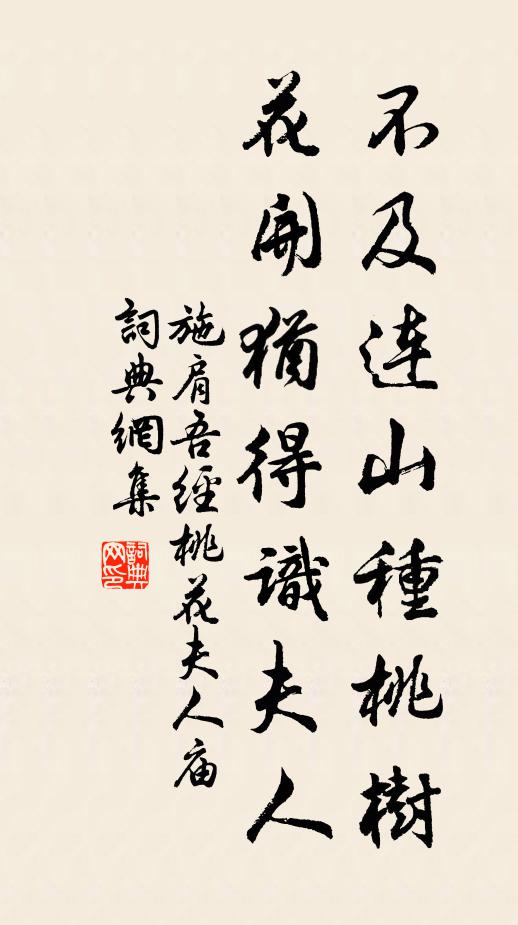 不及連山種桃樹
花開猶得識夫人
施肩吾經桃花夫人庙
詞典網集
詞典网印